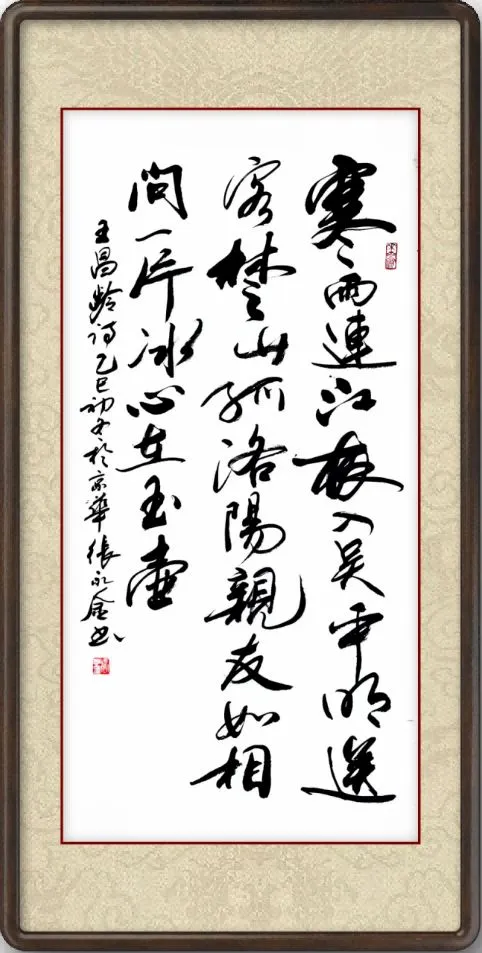 寒雨連江夜入吴平明送
客楚山孤洛陽親友如相
問一片冰心在玉壺
王昌齡詩乙巳初冬於京華張永金书